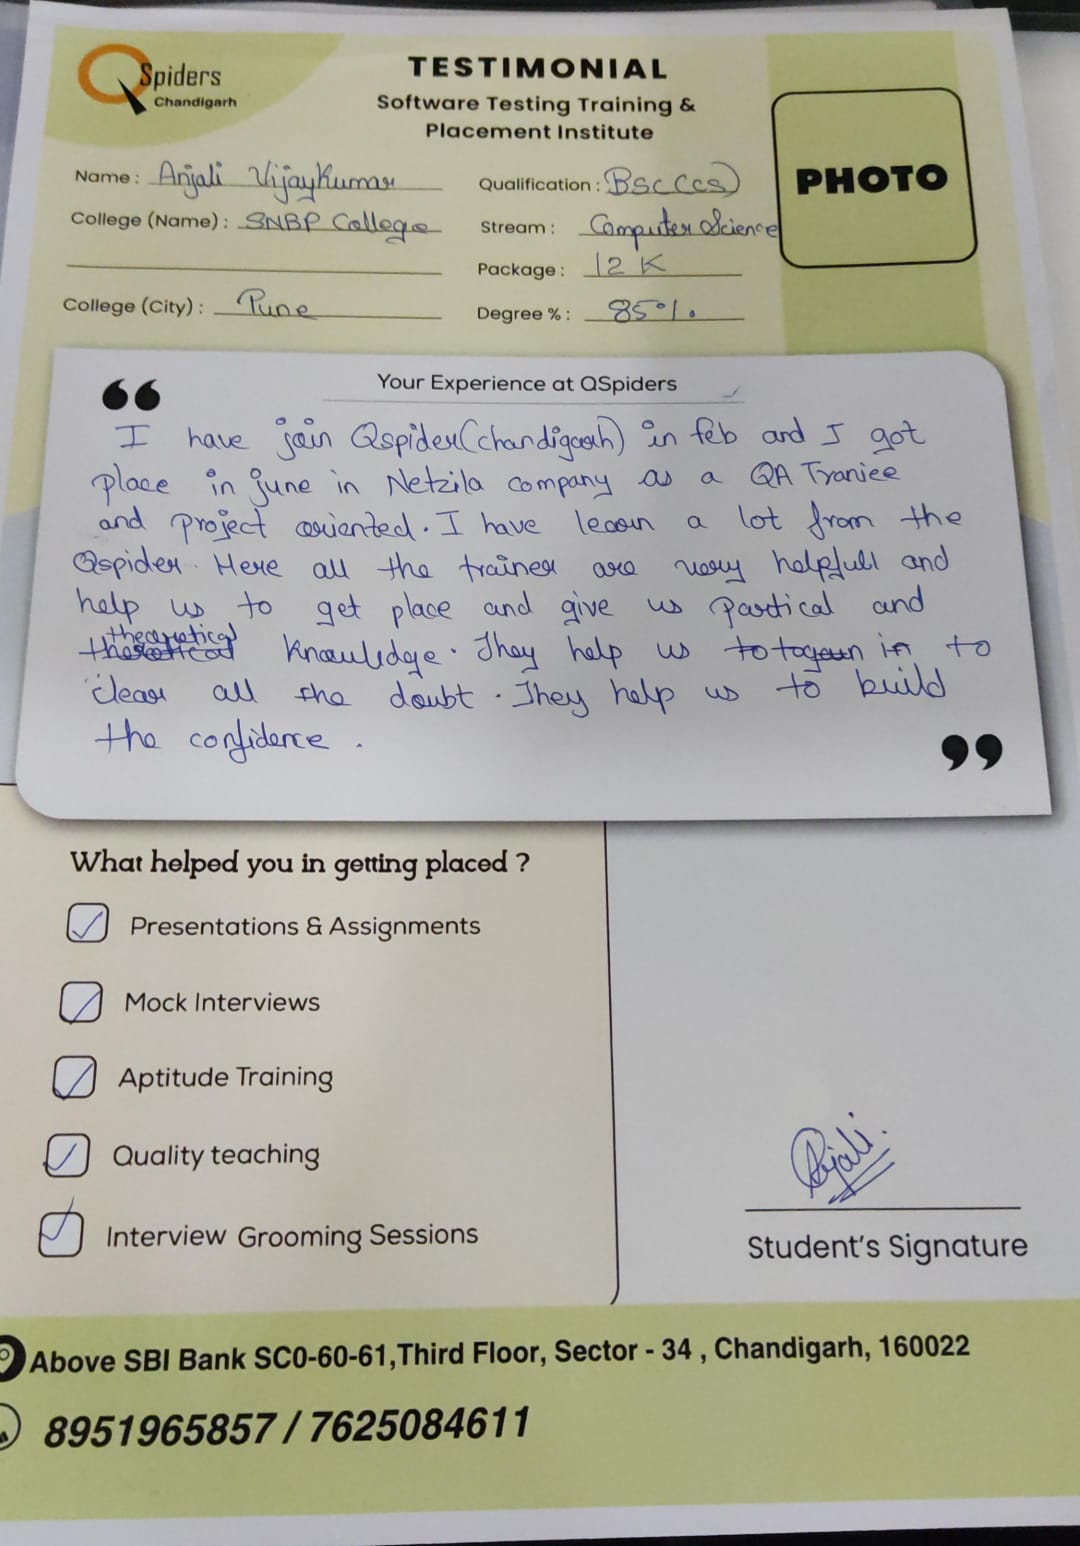 QSpiders
Chandigarh
TESTIMONIAL
Software Testing Training &
Placement Institute
PHOTO
Name : Anjali Vijaykumar
Qualification : Bsc(cs)
College (Name) : SNBP College
Stream : Computer Science
Package : 12 K
College (City) : Pune
Degree % : 85%
Your Experience at QSpiders
I have join Qspider(chandigarh) in feb and I got
place in june in Netzila company as a QA Traniee
and project oriented. I have learn a lot from the
Qspider. Here all the trainer are very helpfull and
help us to get place and give us partical and
theoretical knowledge. They help us to in to
clear all the doubt. They help us to build
the confidence.
What helped you in getting placed ?
Presentations & Assignments
Mock Interviews
Aptitude Training
Quality teaching
Interview Grooming Sessions
Anjali.
Student's Signature
Above SBI Bank SC0-60-61,Third Floor, Sector - 34 , Chandigarh, 160022
8951965857 / 7625084611